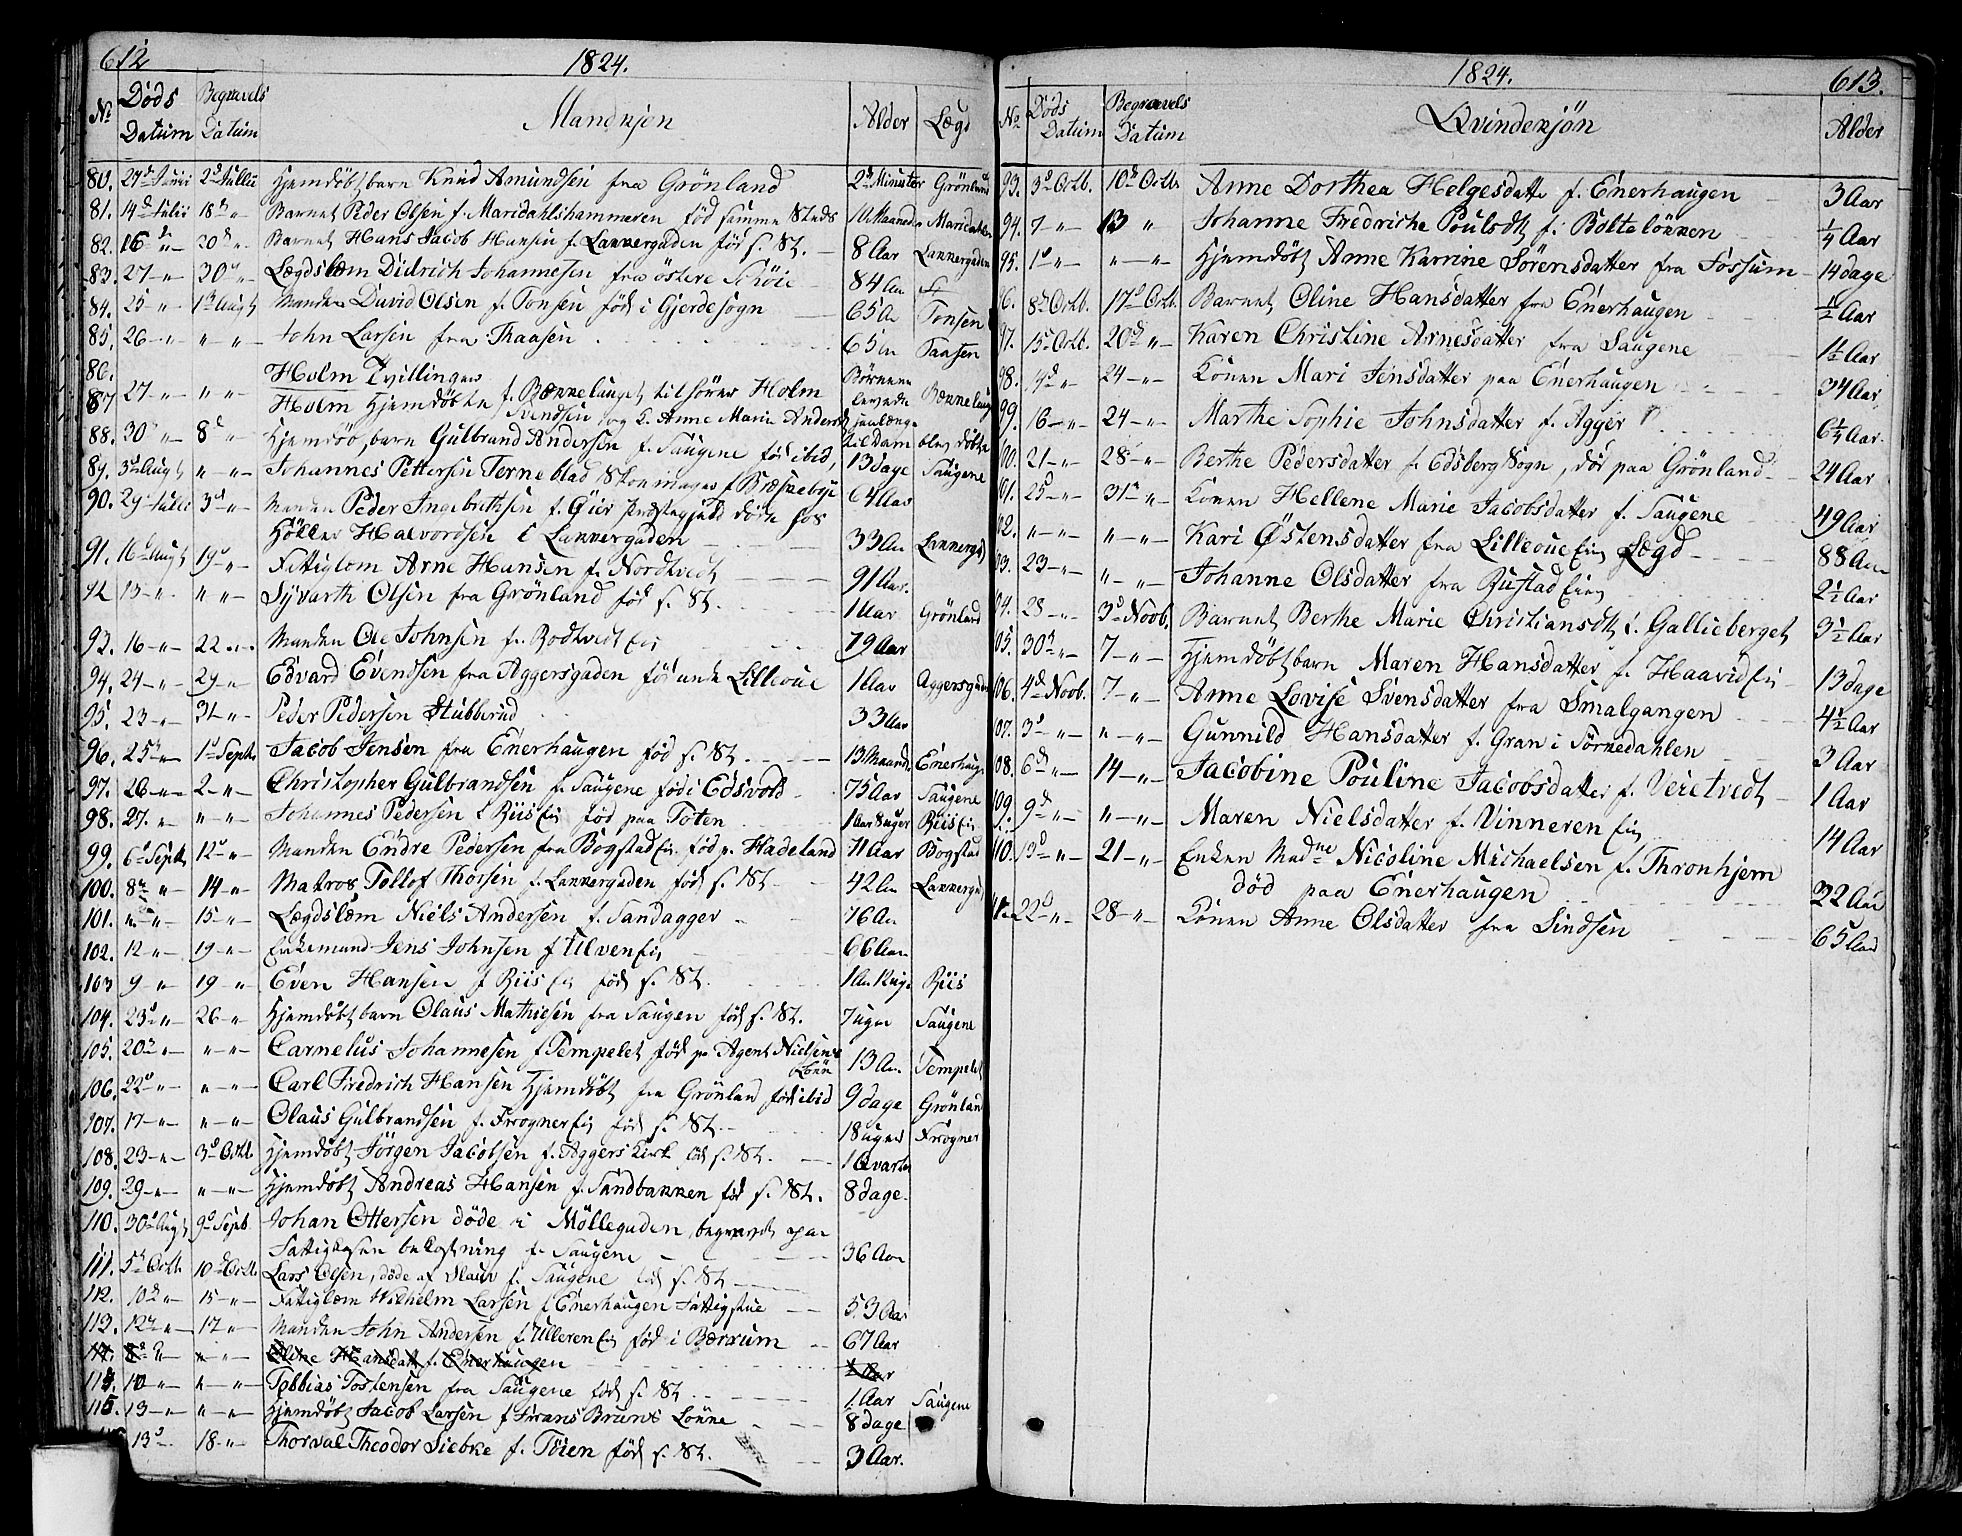 612
1824.
No Döds Datum Begravels Datum Mandkjön Alder Lægd
80. 27d Junii 2d Julii Hjemdöbt barn Knud Amundsen fra Grönland 2 Minuter Grönland
81. 14d Julii 18d „ Barnet Peder Olsen f. Maridahlshammeren föd samme Steds 10 Maaneder Maridalen
82. 16d „ 20d „ Barnet Hans Jacob Hansen f. Lakkergaden föd s. St. 8 Aar Lakkergaden
83. 27 „ 30 „ Lægdslem Didrich Johannesen fra östere 84 Aar
84. 25 „ 1d Augt Manden David Olsen f. Tonsen föd i Gjerdesogn 65 Aar Tonsen
85. 26 „ „ „ John Larsen fra Thaasen 65 Aar Taasen
86. Holm Tvillinger
87 27 „ „ „ Holm Hjemdöbte f. Bækkelauget tilhörer Holm Börnene levede Bækkelaug
Svendsen og K. Anne Marie Andersd
88. 30 „ 8d „ Hjemdöb. barn Gulbrand Andersen f. Saugene föd ibid, til Dam blev döbte
89. 3d Augt „ „ Johannes Pettersen Terneblad Skoemager f. Bræskebye 13 dage Saugene
90. 29 Julii 3d „ Manden Peder Ingebrethsen f. Præstegjeld döde hos 64 Aar
Halvordsen i Lakkergaden
91. 16d Augt 19d „ Fattiglem Arne Hansen f. Nordtvedt 33 Aar Lakkergad
92 13 „ „ „ Syvarth Olsen fra Grönland föd s. St. 91 Aar.
1 Aar Grönland
93. 16 „ 22 „ Manden Ole Johnsen f. Bodtvedt Eie 79 Aar
94. 24 „ 29 „ Edvard Evendsen fra Aggersgaden föd unde Lilleoue 1 Aar Aggersgade
95. 23 „ 31 „ Peder Pedersen Stubberud 33 Aar
96. 25d „ 1d Septb Jacob Jensen fra Enerhaugen föd s. St. 13 Maand. Enerhaug
97. 26 „ 2 „ Christopher Gulbrandsen f. Saugene föd i Edsvold 75 Aar Saugene
98. 27. „ „ „ Johannes Pedersen f. Riis Eie föd paa Toten Riis Eie
99. 6d Septb 12d „ Manden Endre Pedersen fra Bogstad Eie föd p. Hadeland 71 Aar Bogstad
100. 8d „ 14 „ Matros Tollof Thorsen f. Lakkergaden föd s. St. 42 Aar Lakkergad
101. „ „ 15 „ Lægdslem Niels Andersen f. Sandagger 76 Aar
102. 12 „ 19 „ Enkemand Jens Johnsen f Ulven Eie 66 Aar
103 9 „ 19 „ Even Hansen f Riis Eie föd s. St. Riis
104. 23d „ 26 „ Hjemdöbt barn Olaus Mathiesen fra Saugen föd s. St. 7 uger Saugene
105. 20d „ „ „ Carnelus Johannesen f Tempelet föd pr Agent Nielsens Lökke 13 Aar Tempelet
106. 22d „ „ „ Carl Fredrich Hansen Hjemdöbt fra Grönland föd ibid 9 dage Grönland
107. 17 „ „ „ Olaus Gulbrandsen f. Frogner Eie föd s. St. 18 uger Frogner
108. 23 „ 3d Octb. Hjemdöbt Jörgen Jacobsen f. Aggers Kirke föd s. St. 1 Qvarter
109. 29 „ „ „ Hjemdöbt Andreas Hansen f. Sandbakken föd s. St. 8 dage.
110. 30d Augt 9d Septb Johan Ottersen döde i Möllegaden, begravet paa
Fattigkasen bekostning f. Saugene 36 Aar
111. 5d Octb. 10d Octb. Lars Olsen, döde af f. Saugene föd s. St.
112. 10d „ 15 „ Fattiglem Wilhelm Larsen f Enerhaugen Fattigstue 53 Aar
113. 12d „ 17 „ Manden John Andersen f. Ulleren Eie föd i Bærrum 67 Aar
114. 8d „ „ „ Oline Hansdatt f. Enerhaugen ½ Aar
114. 10 „ „ „ Tobbias Tostensen fra Saugene föd s. St. 1 Aar Saugene
115. 13 „ „ „ Hjemdöbt Jacob Larsen f Frans Bruns Lökke 8 dage
13d 18 „ Thorval Theodor Siebke f. Töien föd s. St. 3 Aar.
1824.
613.
No Döds Datum Begravels Datum Qvindekjön Alder
93. 3d Octb. 10d Octb Anne Dorthea Helgesdatte f. Enerhaugen 3 Aar
94. 7 „ 13 „ Johanne Fredriche Poulsdt f. Bolteløkken ¼ Aar
95. 1d „ „ „ Hjemdöbt Anne Karrine Sörensdatter fra Fossum 14 dage
6. 8d Octb. 17d Octb. Barnet Oline Hansdatter fra Enerhaugen ½ Aar
97. 15 Octb. 20d „ Karen Christine Arnesdatter fra Saugene 1½ Aar
98. „ 24 „ Konen Mari Jensdatter paa Enerhaugen 34 Aar
99. 16 „ 24 „ Marthe Sophie Johnsdatter f. Agger 6¼ Aar.
00. 21 „ 28 „ Berthe Pedersdatter f. Edsberg Sogn, död paa Grönland 24 Aar
01. 25d „ 31d „ Konen Hellene Marie Jacobsdatter f. Saugene 49 Aar
02. „ „ „ „ Kari Östensdatter fra Lilleoue Eie Lægd 88 Aar
03. 23 „ „ „ Johanne Olsdatter fra Rustad Eie 2½ Aar
04. 28 „ 3d Novb. Barnet Berthe Marie Christiansdt f. Gallieberget 3½ Aar
05. 30d „ 7 „ Hjemdöbt barn Maren Hansdatter f. Haavid Eie 13 dage
06. 4d Novb. 7 „ Anne Lovise Svensdatter fra Smalgangen 4½ Aar
07. 3d „ „ „ Gunnild Hansdatter f. Gran i Sörkedahlen 3 Aar
08. 6d „ 14 „ Jacobine Pouline Jacobsdatter f. Veietvedt 1 Aar
109. 9d „ „ „ Maren Nielsdatter f. Vinneren Eie 14 Aar
110. 13d „ 21 „ Enken Madme Nicoline Michaelsen f. Thronhjem
död paa Enerhaugen 32 Aar
22d „ 28 „ Konen Anne Olsdatter fra Sindsen 65 Aar